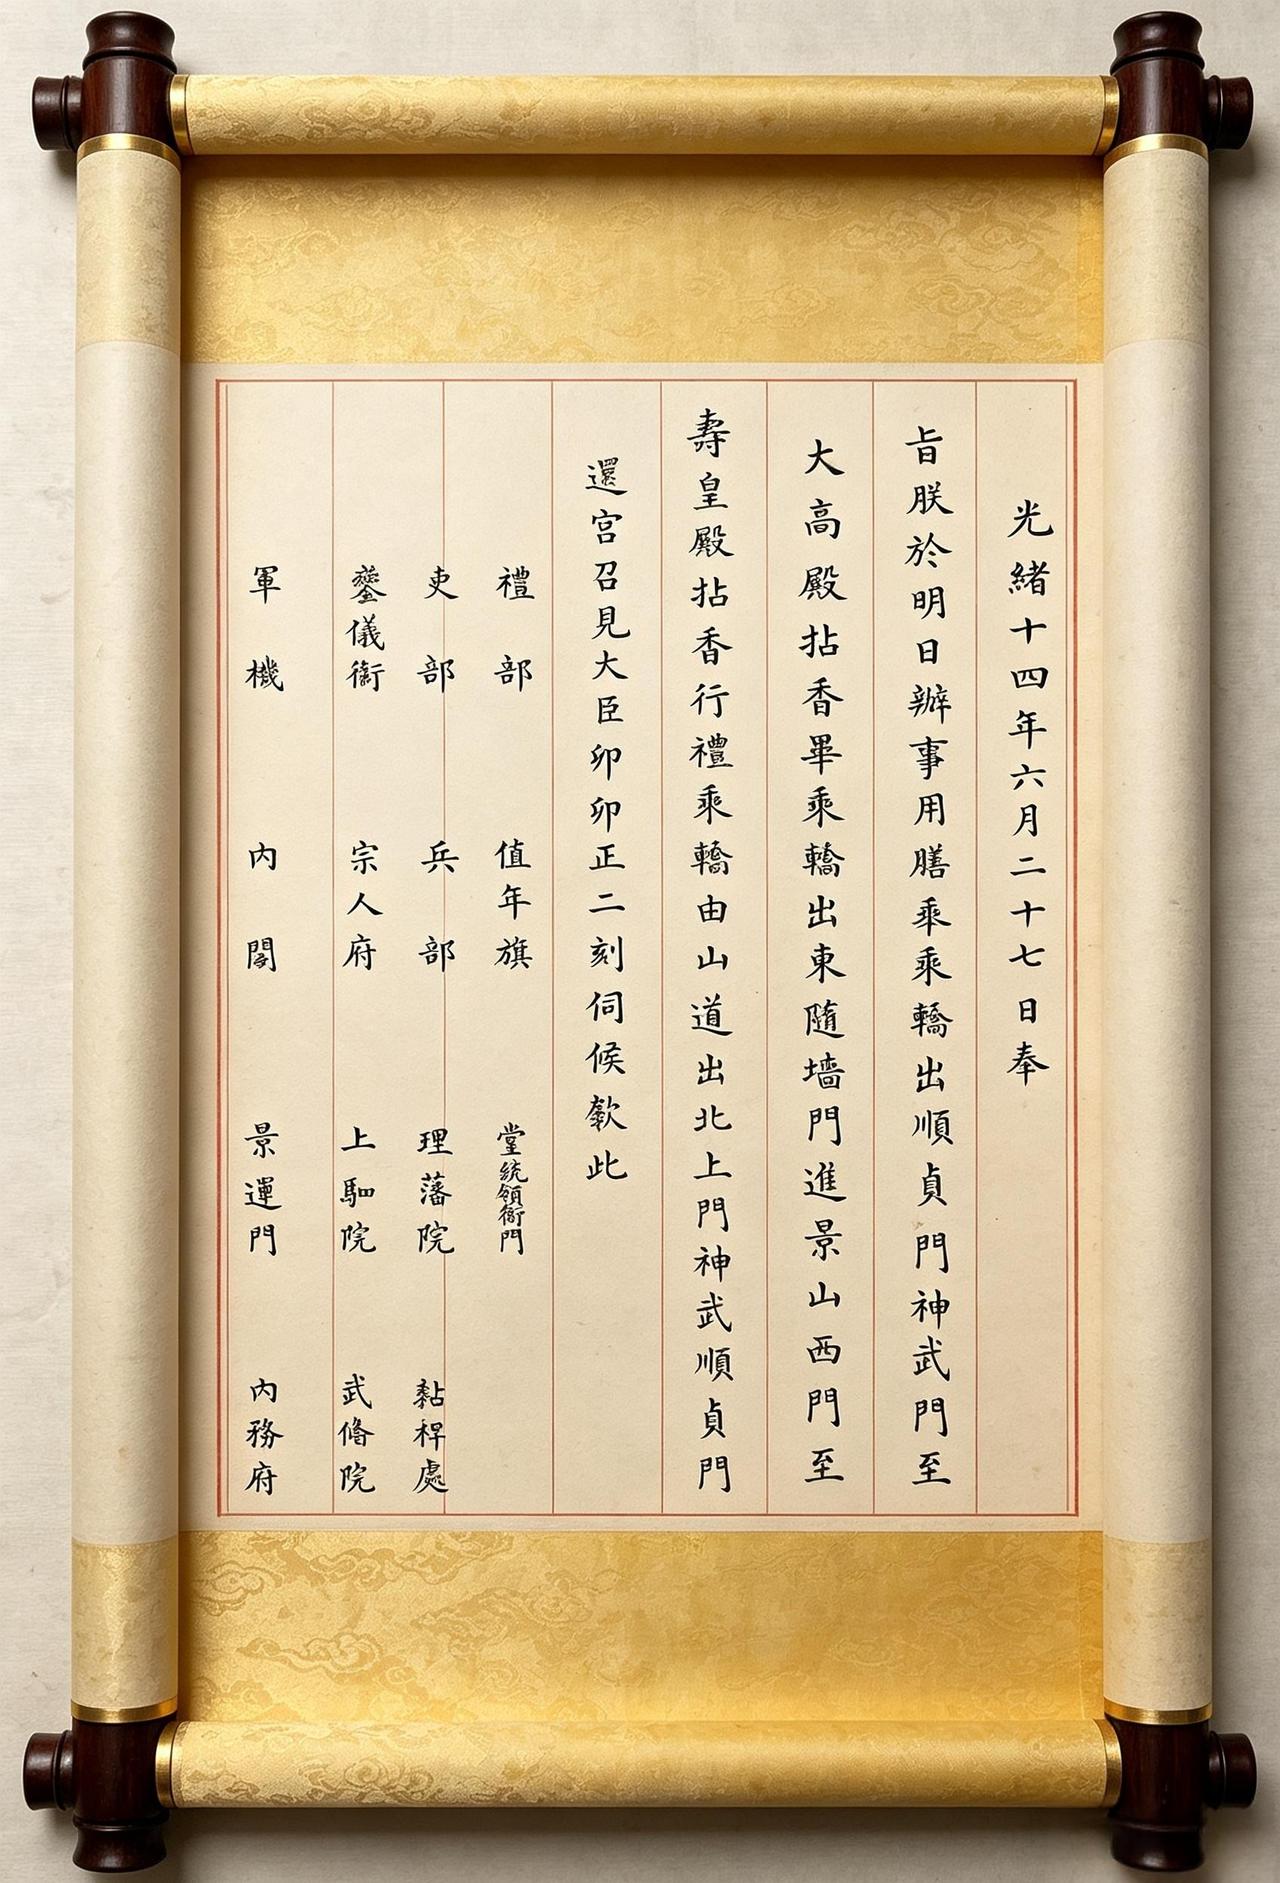 光緒十四年六月二十七日奉
旨朕於明日辦事用膳乘乘轎出順貞門神武門至
大高殿拈香畢乘轎出東隨墻門進景山西門至
壽皇殿拈香行禮乘轎由山道出北上門神武順貞門
還宮召見大臣卯卯正二刻伺候歘此
禮部 值年旗 堂統領衙門
吏部 兵部 理藩院 黏桿處
鑾儀衛 宗人府 上駟院 武備院
軍機 內閣 景運門 內務府